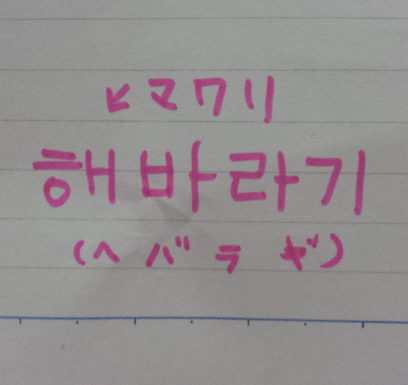 ヒマワリ
해바라기
(ヘバラギ)